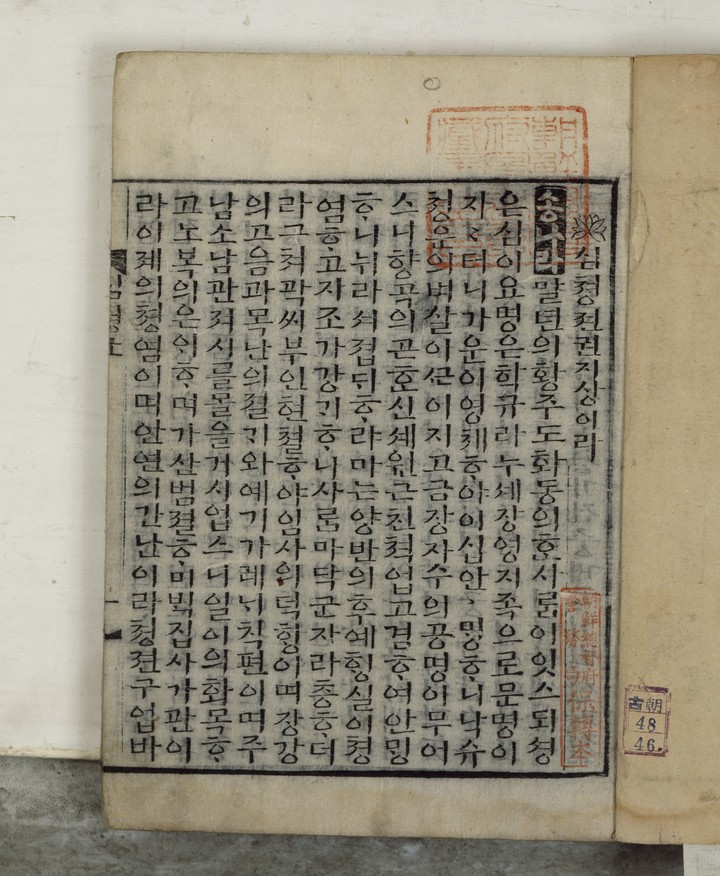 심쳥젼권지상이라
송나라말년의황주도화동의ᄒᆞᆫ사ᄅᆞᆷ이잇스되셩
은심이요명은학규라누셰잠영지족으로문명이
자〻터니가운이영쳬ᄒᆞ야이십안ᄆᆡᆼᄒᆞ니낙슈
쳥운의벼살이ᄭᅳᆫ어지고금장자수의공명이무어
스니향곡의곤ᄒᆞᆫ신셰원근친쳑업고겸ᄒᆞ여안ᄆᆡᆼ
ᄒᆞ니뉘라셔졉ᄃᆡᄒᆞ랴마는양반의후예ᄒᆡᆼ실이쳥
염ᄒᆞ고지조가강ᄀᆡᄒᆞ니사ᄅᆞᆷ마닥군자라층ᄒᆞ더
라그쳐곽씨부인현쳘ᄒᆞ야임사의덕ᄒᆡᆼ이며장강
의고음과목난의졀ᄀᆡ와예기가례ᄂᆡ칙편이며주
남소남관져시를몰을거시업스니일이의화목ᄒᆞ
고노복의은ᄋᆡᄒᆞ며가산범졀ᄒᆞ미ᄇᆡᆨ집사가관이
라이졔의쳥염이며안연의간난이라쳥젼구업바
古朝
48
46.